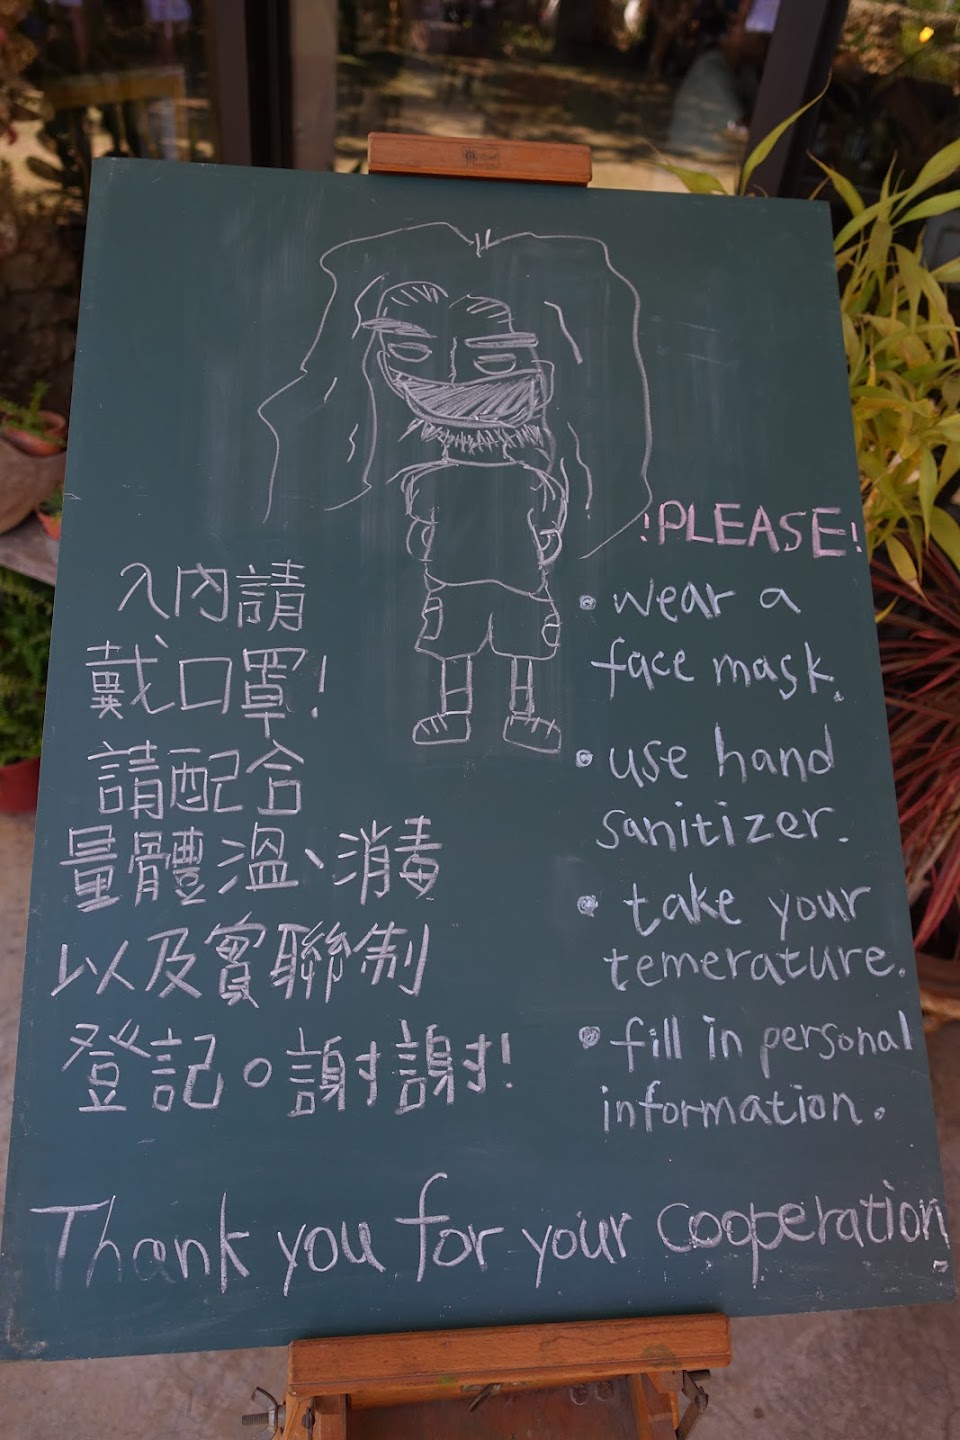 入內請
戴口罩!
請配合
量體溫、消毒
以及實聯制
登記。謝謝!
!PLEASE!
• wear a
face mask.
• use hand
sanitizer.
• take your
temerature.
• fill in personal
information.
Thank you for your cooperation